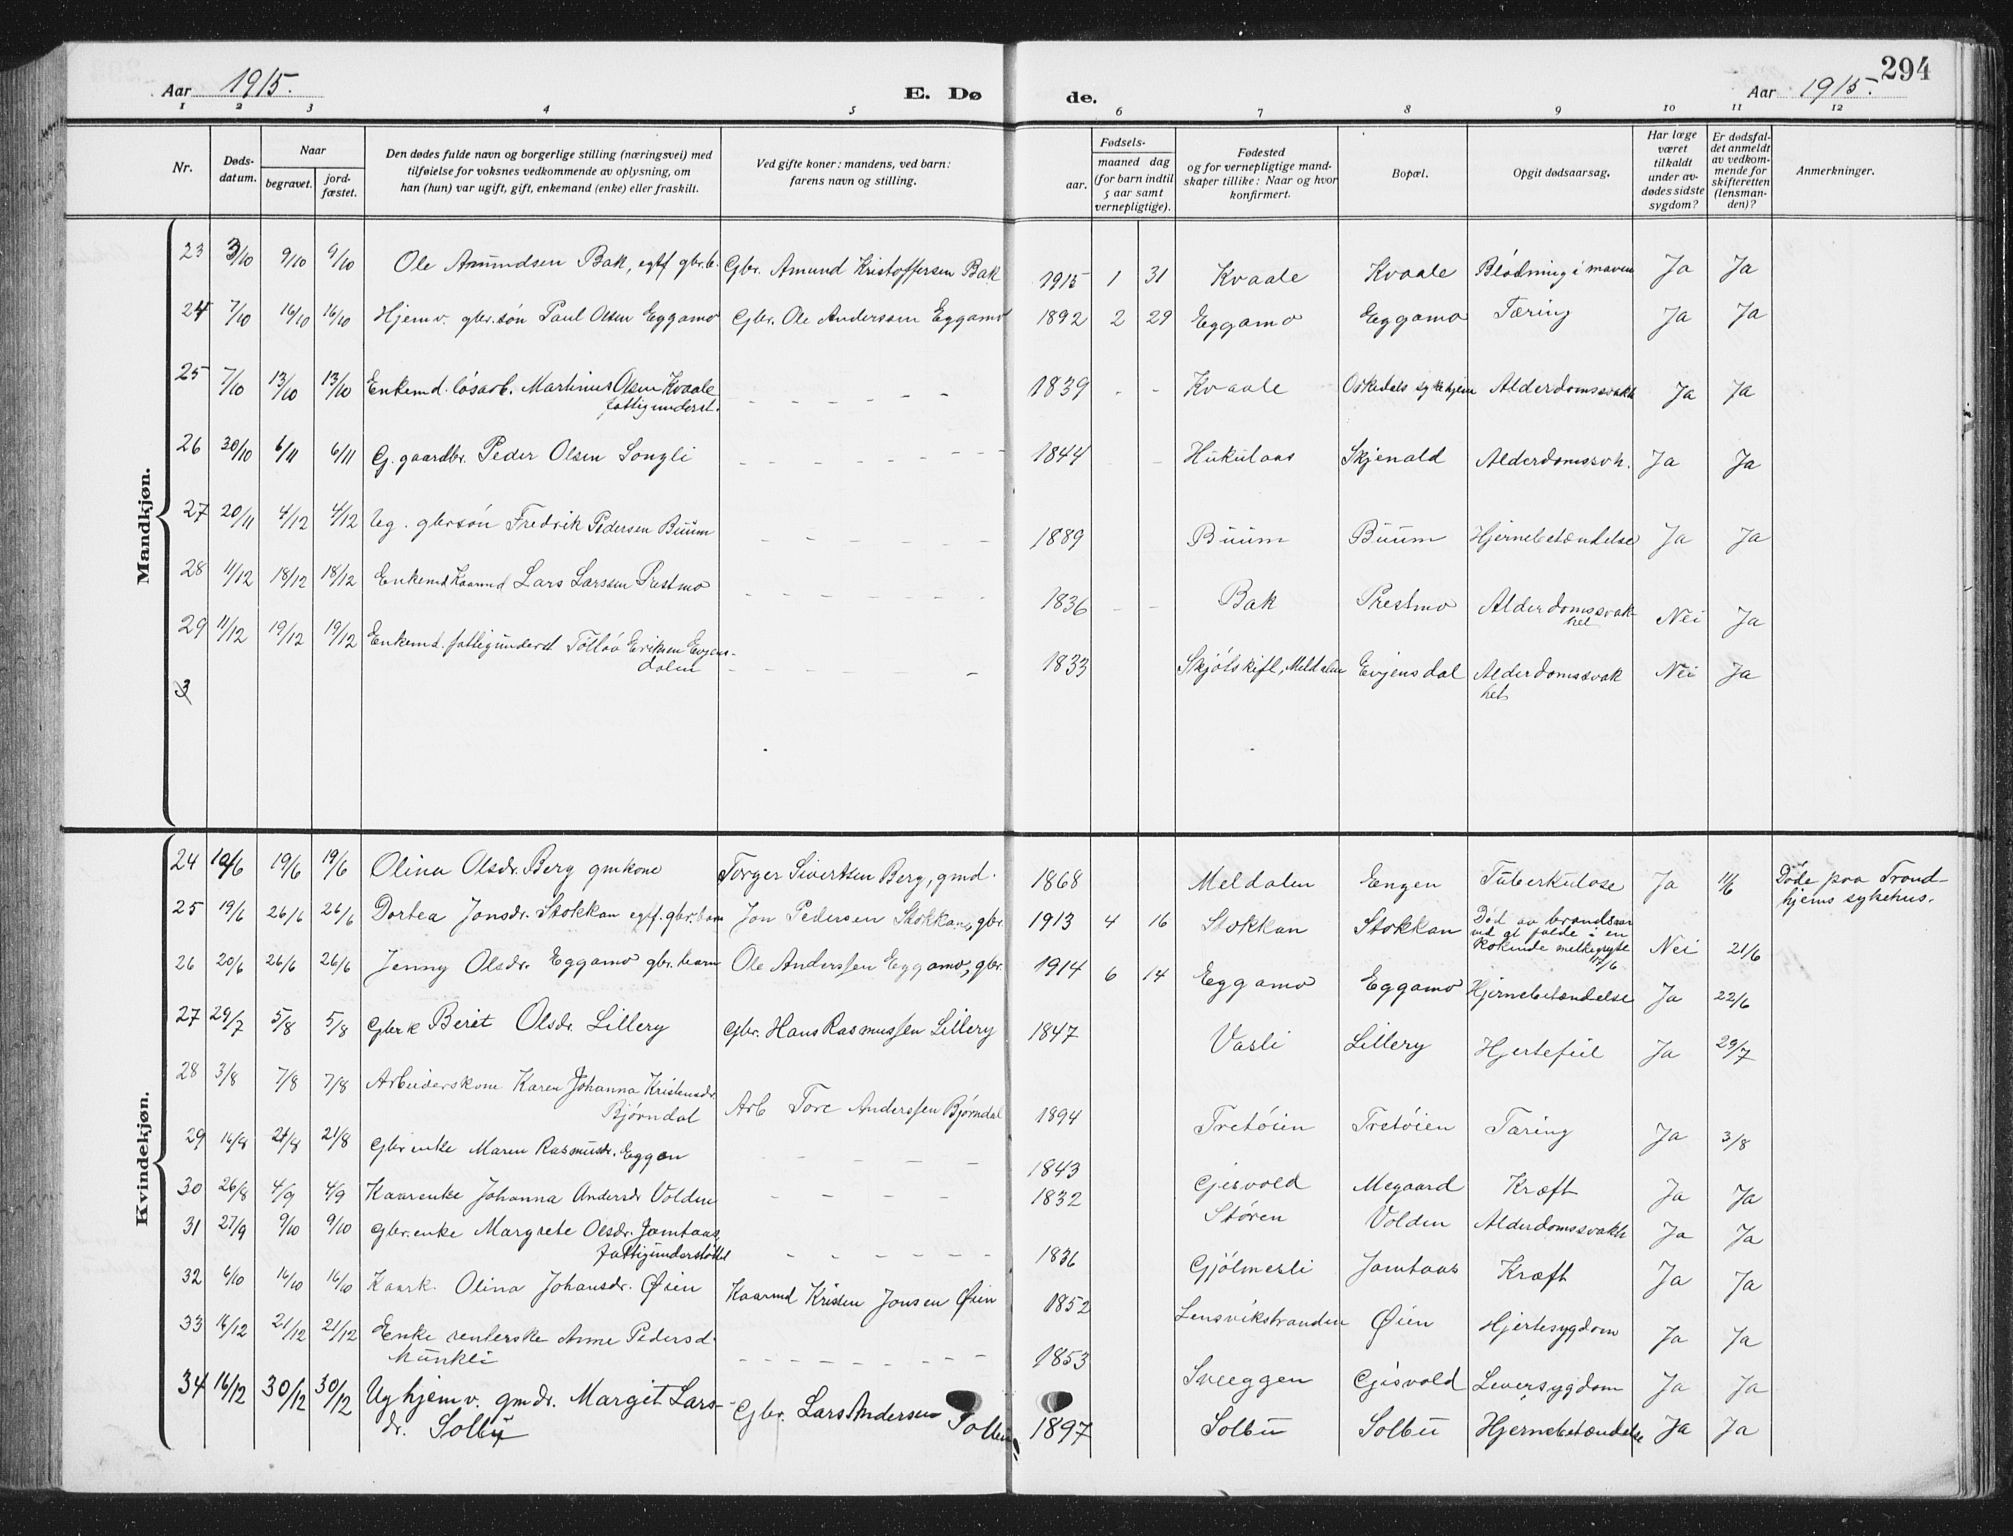 294
Aar 1915.
E. Døde.
Aar 1915.
1 2 3 4 5 6 7 8 9 10 11 12
Nr.
Døds-datum.
Naar
begravet.
jord-fæstet.
Den dødes fulde navn og borgerlige stilling (næringsvei) med tilføielse for voksnes vedkommende av oplysning, om han (hun) var ugift, gift, enkemand (enke) eller fraskilt.
Ved gifte koner: mandens, ved barn: farens navn og stilling.
Fødsels-
aar.
maaned dag (for barn indtil 5 aar samt vernepligtige).
Fødested og for vernepligtige mandskaper tillike: Naar og hvor konfirmert.
Bopæl.
Opgit dødsaarsag.
Har læge været tilkaldt under avdødes sidste sygdom?
Er dødsfaldet anmeldt av vedkommende for skifteretten (lensmanden)?
Anmerkninger.
Mandkjøn.
23 3/10 9/10 9/10 Ole Amundsen Bak, egtf gbr.b. Gbr. Amund Kristoffersen Bak 1915 1 31 Kvaale Kvaale Blødning i maven Ja Ja
24 7/10 16/10 16/10 Hjemv. gbr.søn Paul Olsen Eggamo Gbr. Ole Anderssen Eggamo 1892 2 29 Eggamo Eggamo Tæring Ja Ja
25 7/10 13/10 13/10 Enkemd. løsarb. Martinus Olsen Kvaale - - - - - 1839 - - Kvaale Orkedals sykehjem Alderdomssvakh Ja Ja
fattigunderst.
26 30/10 6/11 6/11 G. gaardbr. Peder Olsen Songli - - - - - 1844 - - Hukulaas Skjenald Alderdomssvh. Ja Ja
27 20/11 4/12 4/12 Ug. gbrsøn Fredrik Pedersen Buum - - - - - 1889 Buum Buum Hjernebetændelse Ja Ja
28 11/12 18/12 18/12 Enkemd Kaarmd Lars Larssen Prestmo - - - - - 1836 - - Bak Prestmo Alderdomssvak-
het Nei Ja
29 11/12 19/12 19/12 Enkemd. fattigunderst Tollov Eriksen Evjens-
dalen - - - - - 1833 Skjølskift, Meldalen Evjensdal Alderdomssvak
het Nei Ja
3
Kvindekjøn.
24 10/6 19/6 19/6 Olina Olsdr. Berg gmkone Torger Sivertsen Berg, gmd. 1868 Meldalen Engen Tuberkulose Ja 11/6 Døde paa Trond-
hjems sykehus.
25 19/6 26/6 26/6 Dortea Jonsdr. Stokkan egtf. gbr.barn Jon Pedersen Stokkan, gbr. 1913 4 16 Stokkan Stokkan Død av brandsaar
ved at falde i en
kokende melkegryte
17/6 Nei 21/6
26 20/6 26/6 26/6 Jenny Olsdr. Eggamo gbr.barn Ole Anderssen Eggamo, gbr. 1914 6 14 Eggamo Eggamo Hjernebetændelse Ja 22/6
27 29/7 5/8 5/8 Gbrk Berit Olsdr. Lillery Gbr. Hans Rasmussen Lillery 1847 Vasli Lillery Hjertefeil Ja 29/7
28 3/8 7/8 7/8 Arbeiderskone Karen Johanna Kristensdr.
Bjørndal Arb Tore Anderssen Bjørndal 1894 Tretøien Tretøien Tæring Ja 3/8
29 14/8 21/8 21/8 Gbr enke Maren Rasmusdr. Eggen - - - - 1843 Gjisvold Megaard Kræft Ja Ja
30 26/8 4/9 4/9 Kaarenke Johanna Andersdr Volden - - - - 1832 Støren Volden Alderdomssvakh Ja Ja
31 27/9 9/10 9/10 Gbr.enke Margrete Olsdr. Jamtaas,
fattigunderstøttet - - - - - 1836 Gjølmesli Jamtaas Kræft Ja Ja
32 6/10 16/10 16/10 Kaark. Olina Johansdr. Øien Kaarmd Kristen Jonsen Øien 1852 Lensvikstranden Øien Hjertesygdom Ja Ja
33 14/12 21/12 21/12 Enke renterske Anne Pedersd.
Munkli - - - - - 1853 Sveeggen Gjisvold Leversygdom Ja Ja
34 16/12 30/12 30/12 Ug hjemv. gmdr. Margit Lars-
dr. Solbu Gbr. Lars Andersen Solbu 1897 Solbu Solbu Hjernebetændelse Ja Ja